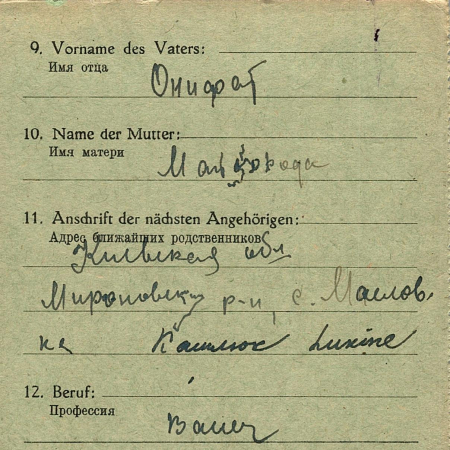 9. Vorname des Vaters:
Имя отца
Онифат
10. Name der Mutter:
Имя матери
11. Anschrift der nächsten Angehörigen:
Адрес ближайших родственников
Киевская обл
Мироновский р-н, с. Маслов
ка
12. Beruf:
Профессия